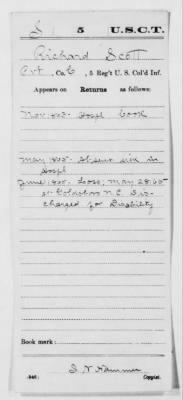 S 5 U.S.C.T.
Richard Scott
Pvt., Co. C, 5 Reg't U. S. Col'd Inf.
Appears on Returns as follows:
Nov. 186 . Hospl Cook
May 1865. Absent sick in
Hospl
June 1865. Loss, May 28, 65
at Goldsboro N.C. Dis-
charged for Disability
Book mark:
(546) Copyist.